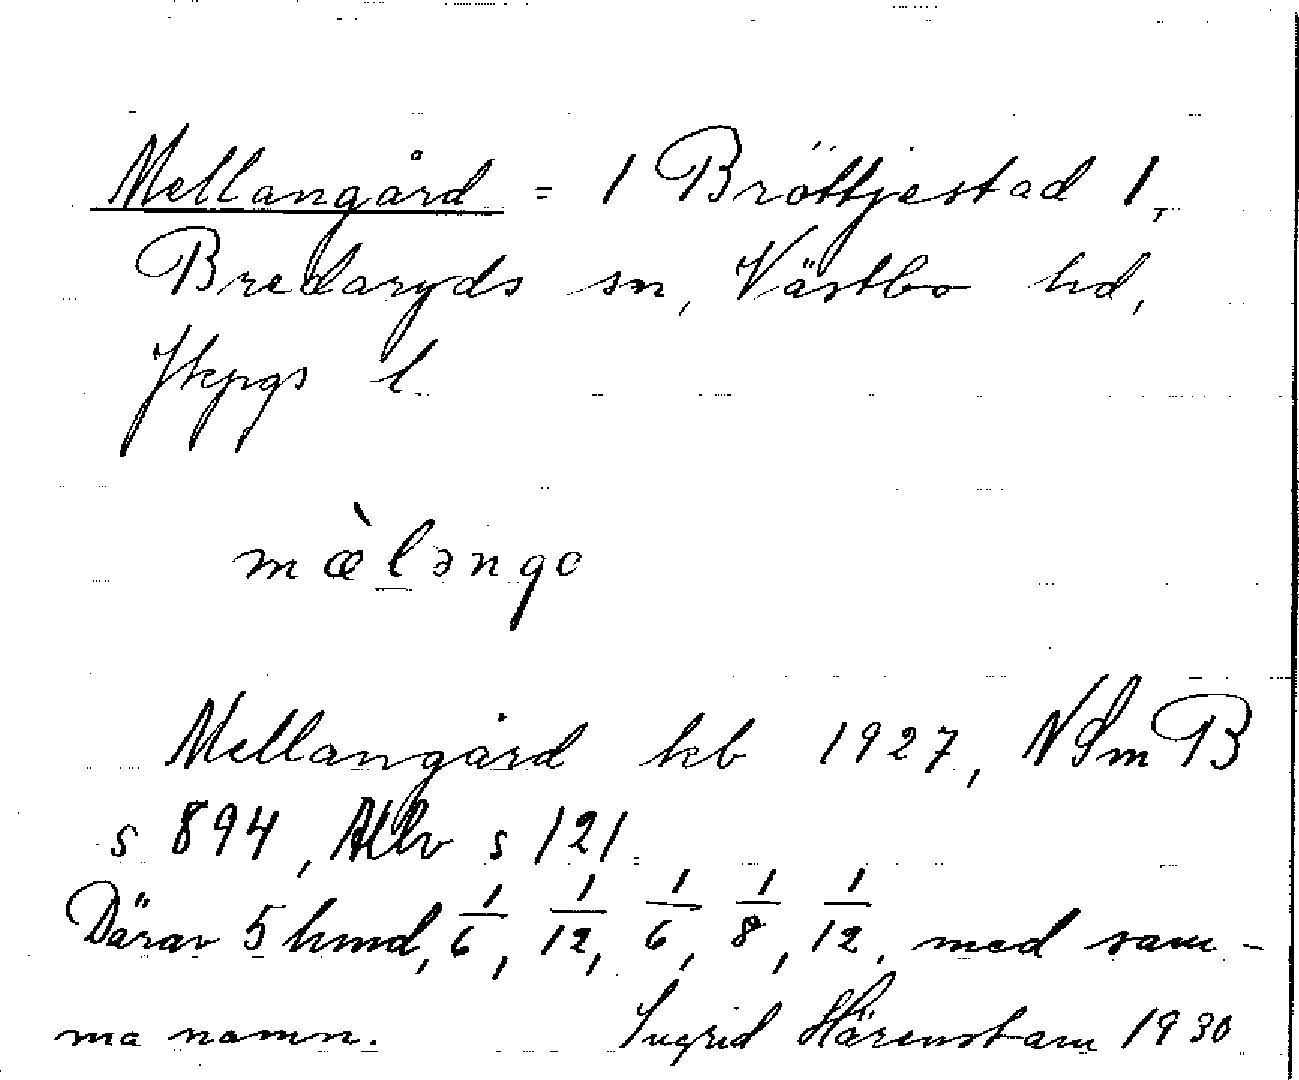 Mellangård = 1 Bröttjestad 1,
Bredaryds sn, Västbo hd,
Jkpgs l.
mæ̀ləngo
Mellangård kb 1927, NSmB
s 894, AHlv s 121.
Därav 5 hmd, 1/6, 1/12, 1/6, 1/8, 1/12, med sam-
ma namn. Ingrid Härenstam 1930